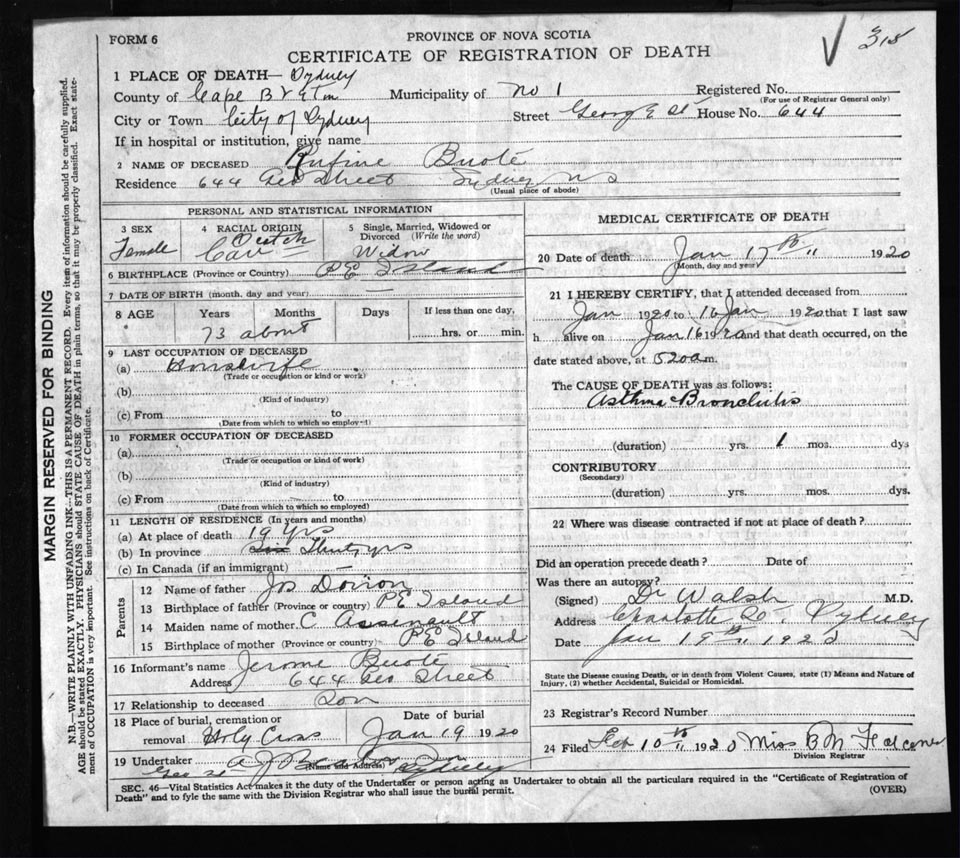 318
FORM 6
PROVINCE OF NOVA SCOTIA
CERTIFICATE OF REGISTRATION OF DEATH
1 PLACE OF DEATH— Sydney
County of Cape Breton Municipality of No 1 Registered No.
(For use of Registrar General only)
City or Town City of Sydney Street George St House No. 644
If in hospital or institution, give name
2 NAME OF DECEASED Rufine Buote
Residence 644 Geo Street Sydney NS
(Usual place of abode)
PERSONAL AND STATISTICAL INFORMATION
3 SEX 4 RACIAL ORIGIN 5 Single, Married, Widowed or Divorced (Write the word)
Female Widow
6 BIRTHPLACE (Province or Country) PE Island
7 DATE OF BIRTH (month, day and year) —
8 AGE Years Months Days If less than one day,
73 about hrs. or min.
9 LAST OCCUPATION OF DECEASED
(a) Housewife
(Trade or occupation or kind or work)
(b)
(Kind of industry)
(c) From to
(Date from which to which so employed)
10 FORMER OCCUPATION OF DECEASED
(a)
(Trade or occupation or kind of work)
(b)
(Kind of industry)
(c) From to
(Date from which to which so employed)
11 LENGTH OF RESIDENCE (In years and months)
(a) At place of death 19 yrs
(b) In province yrs
(c) In Canada (if an immigrant) —
Parents
12 Name of father Jos Doiron
13 Birthplace of father (Province or country) PE Island
14 Maiden name of mother C Assinault
15 Birthplace of mother (Province or country) PE Island
16 Informant's name Jerome Buote
Address 644 Geo Street
17 Relationship to deceased Son
18 Place of burial, cremation or removal Holy Cross Date of burial Jan 19 1920
19 Undertaker A J Sydney
(Name and Address)
Geo St
MEDICAL CERTIFICATE OF DEATH
20 Date of death Jan 17th 1920
(Month, day and year)
21 I HEREBY CERTIFY, that I attended deceased from
Jan 1920 to 16 Jan 1920 that I last saw
h alive on Jan 16 1920 and that death occurred, on the
date stated above, at 520 a m.
The CAUSE OF DEATH was as follows:
Asthma Bronchitis
(duration) yrs. 1 mos. dys
CONTRIBUTORY
(Secondary)
(duration) yrs. mos. dys.
22 Where was disease contracted if not at place of death?
Did an operation precede death? Date of
Was there an autopsy?
(Signed) Dr Walsh M.D.
Address Charlotte St. Sydney
Date Jan 19th 1920
State the Disease causing Death, or in death from Violent Causes, state (1) Means and Nature of
Injury, (2) whether Accidental, Suicidal or Homicidal.
23 Registrar's Record Number
24 Filed Feb 10th 1920 Miss B M Falconer
Division Registrar
SEC. 46—Vital Statistics Act makes it the duty of the Undertaker or person acting as Undertaker to obtain all the particulars required in the "Certificate of Registration of
Death" and to fyle the same with the Division Registrar who shall issue the burial permit. (OVER)
MARGIN RESERVED FOR BINDING
N.B.—WRITE PLAINLY WITH UNFADING INK—THIS IS A PERMANENT RECORD. Every item of information should be carefully supplied.
AGE should be stated EXACTLY. PHYSICIANS should STATE CAUSE OF DEATH in plain terms, so that it may be properly classified. Exact state-
ment of OCCUPATION is very important. See instructions on back of Certificate.